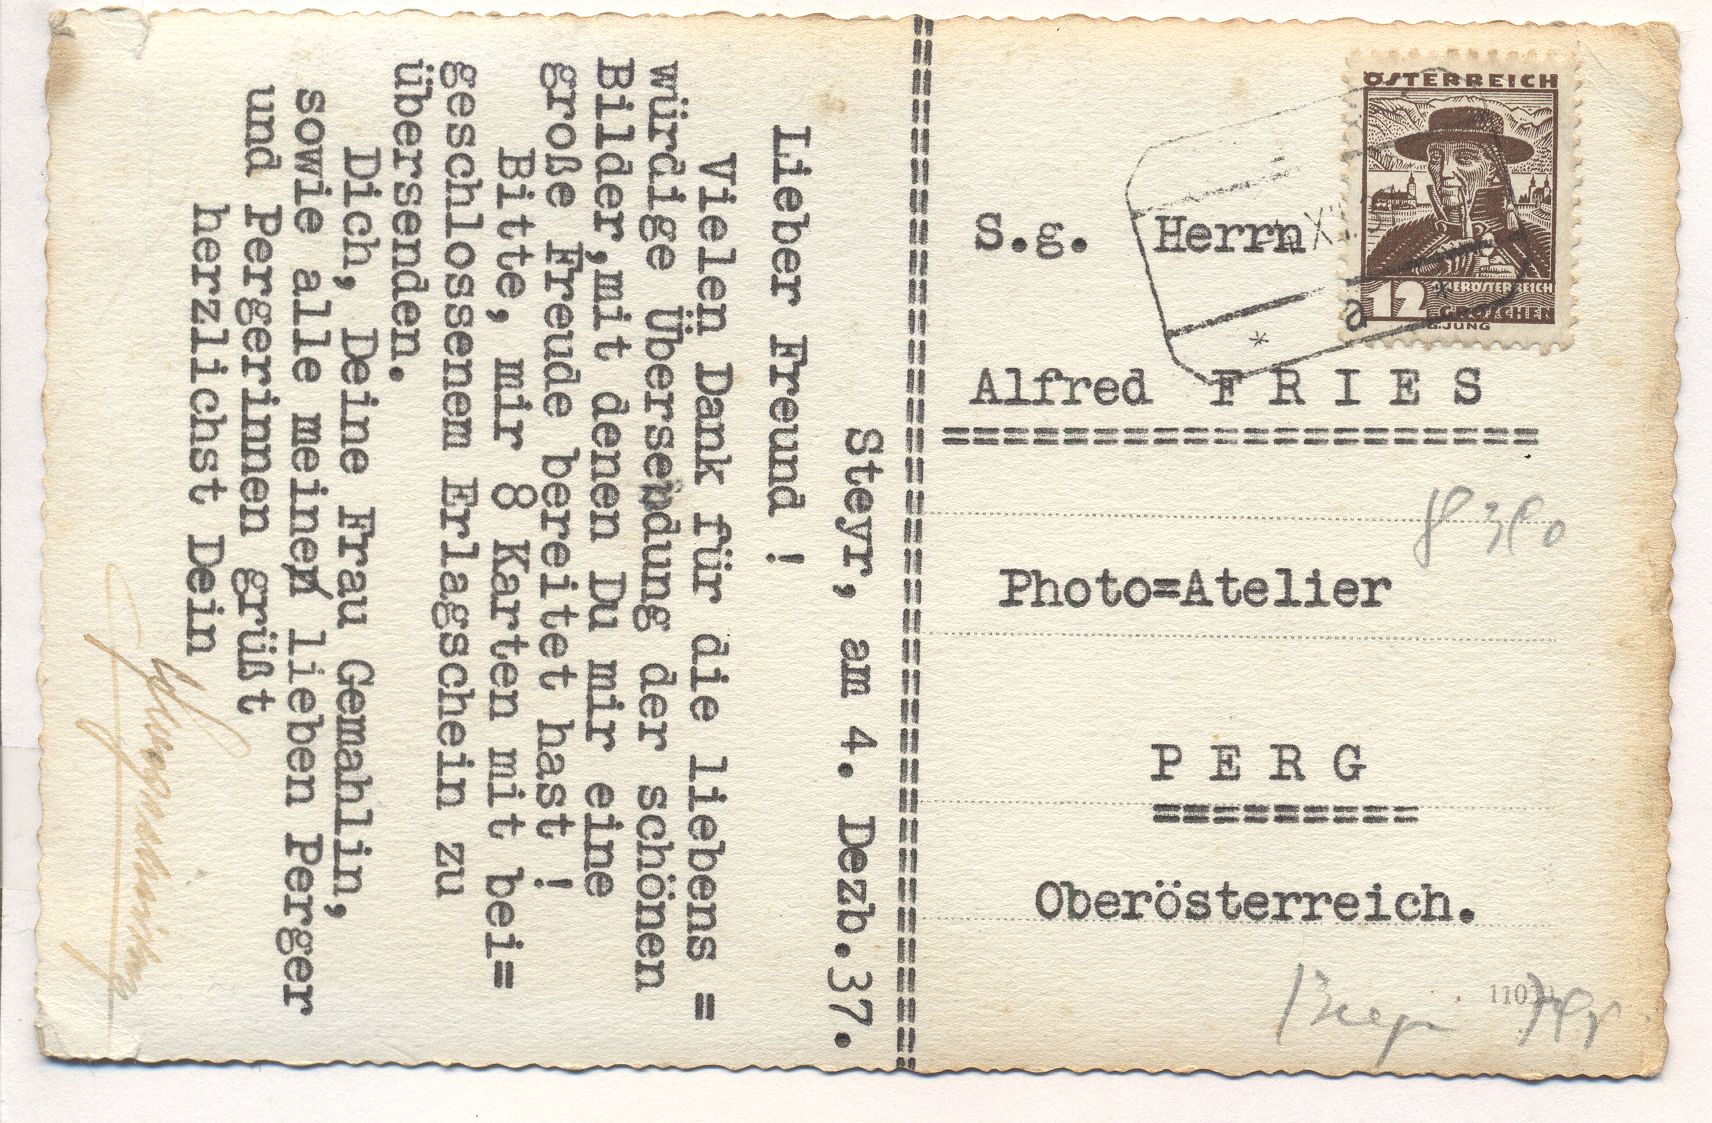 Steyr, am 4. Dezb.37.
Lieber Freund !
Vielen Dank für die liebens =
würdige Übersendung der schönen
Bilder,mit denen Du mir eine
große Freude bereitet hast !
Bitte, mir 8 Karten mit bei=
geschlossenem Erlagschein zu
übersenden.
Dich, Deine Frau Gemahlin,
sowie alle meinen lieben Perger
und Pergerinnen grüßt
herzlichst Dein
ÖSTERREICH
OBERÖSTERREICH
12 GROSCHEN
G.JUNG
S.g. Herrn
a
Alfred F R I E S
Photo=Atelier
P E R G
Oberösterreich.